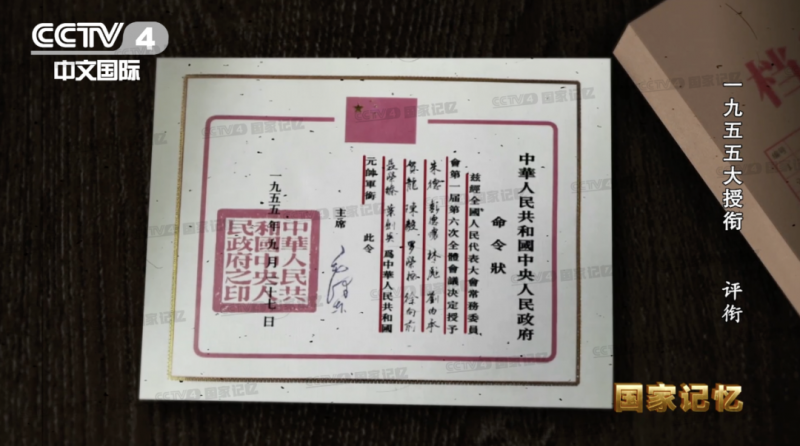 CCTV 4
中文国际
CCTV4 国家记忆
中華人民共和國中央人民政府
命令狀
茲經全國人民代表大會常務委員
會第一屆第六次全體會議決定授予
朱德 彭德懷 林彪 劉伯承
賀龍 陳毅 羅榮桓 徐向前
聶榮臻 葉劍英 爲中華人民共和國
元帥軍銜 此令
主席
毛澤東
一九五五年九月二十七日
中華人民共
和國中央人
民政府之印
档
一九五五大授衔 评衔
国家记忆